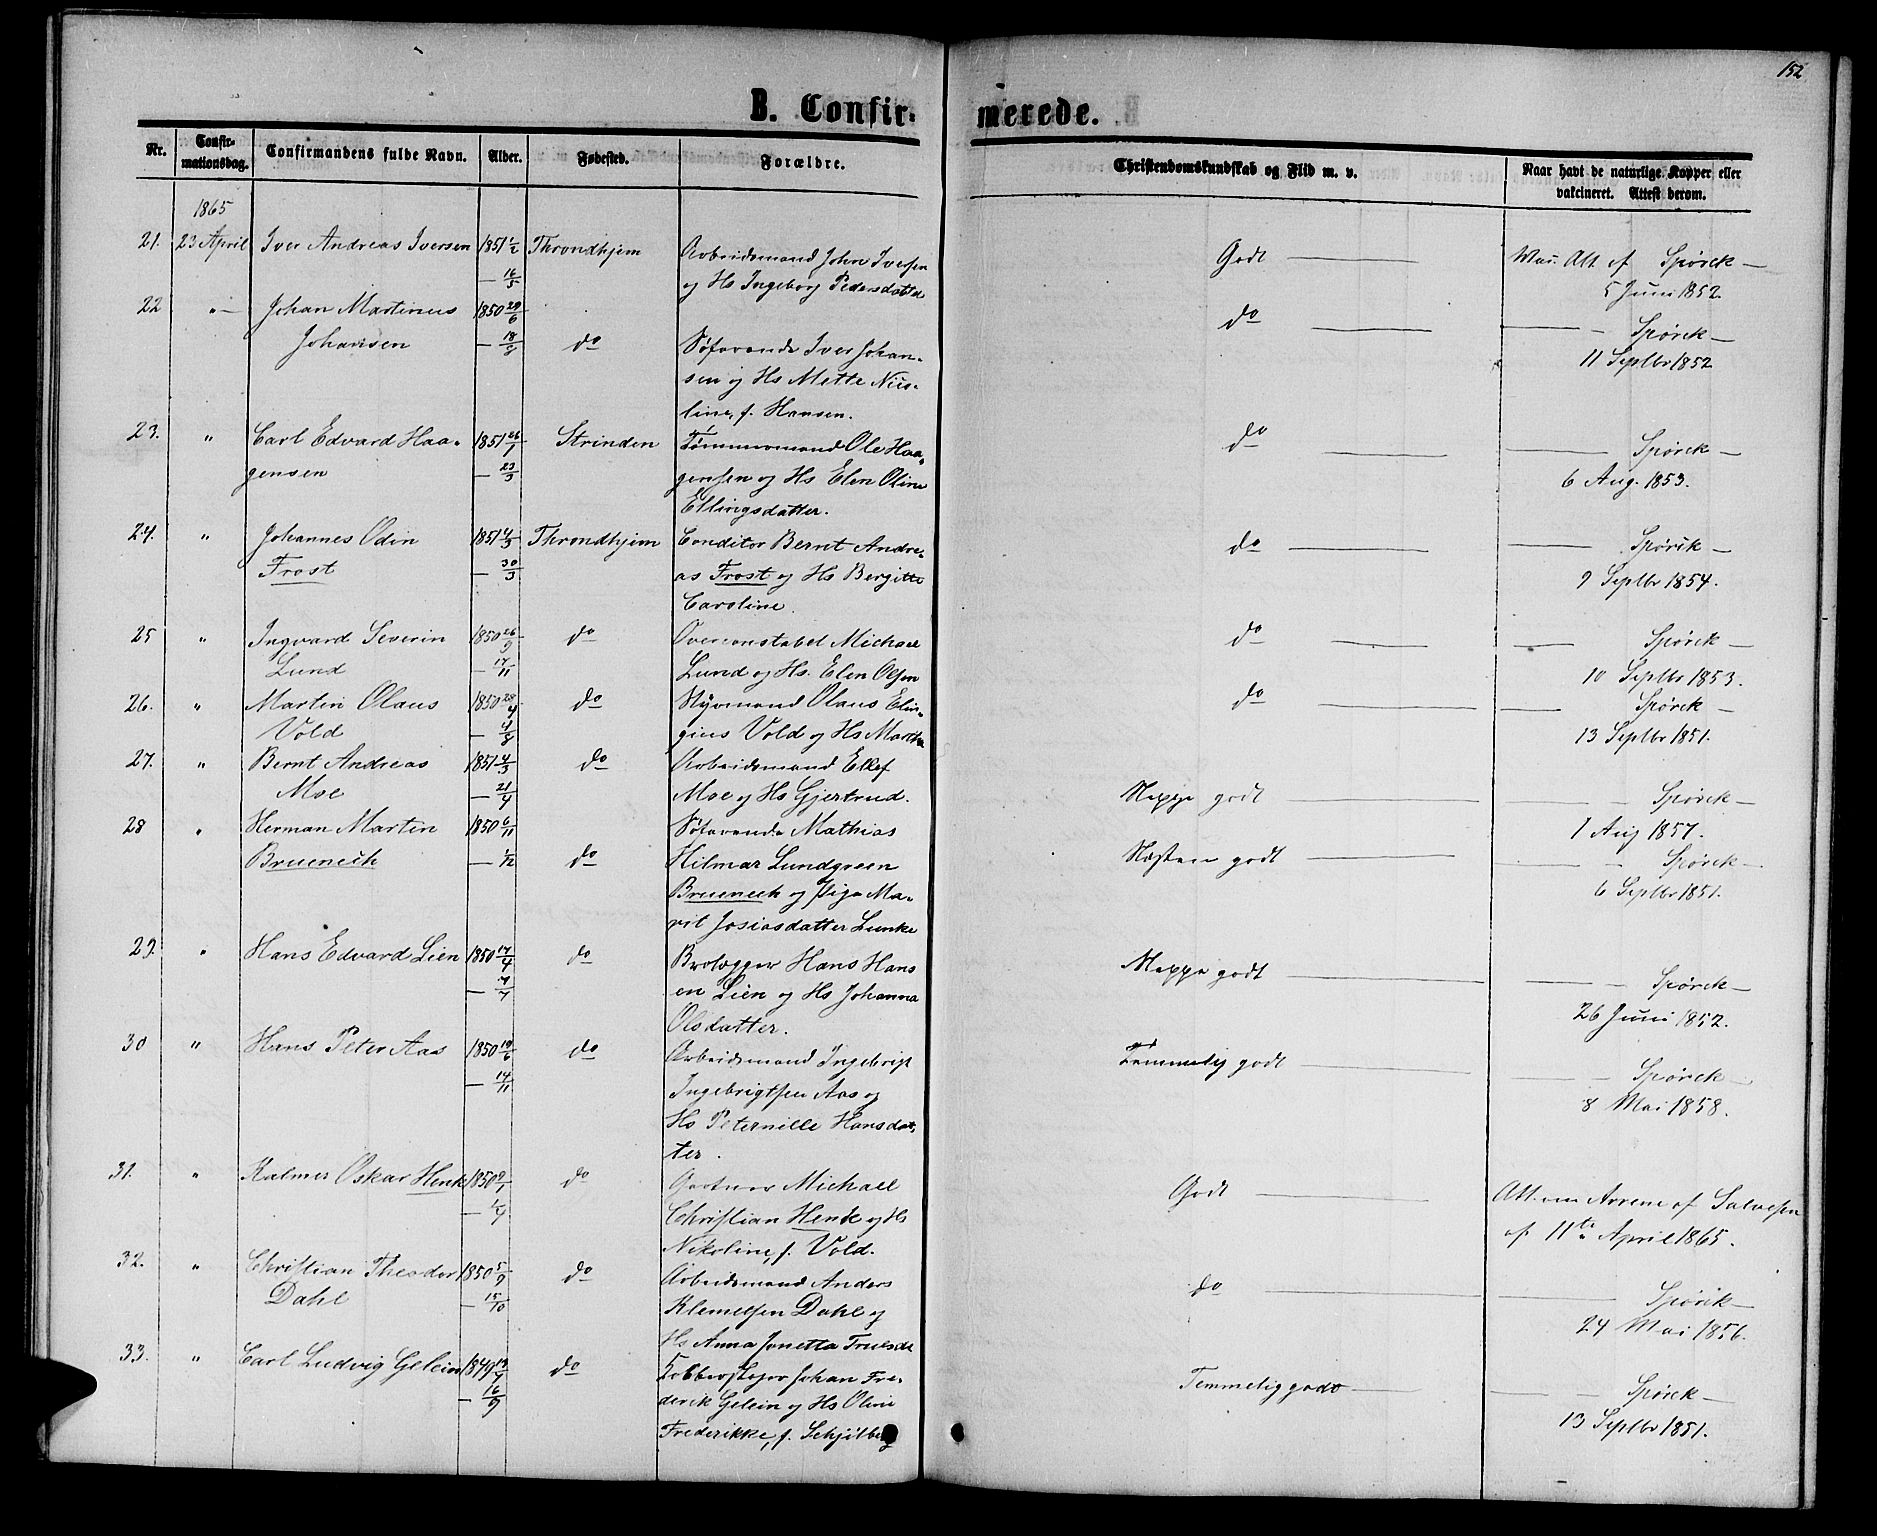 152
B. Confir- merede.
Nr. Confir-mationsdag. Confirmandens fulde Navn. Alder. Fødested. Forældre. Christendomskundskab og Flid m. v. Naar havt de naturlige Kopper eller vakcineret. Attest derom.
1865
21. 23 April Iver Andreas Iversen 1851 1/2 Throndhjem Arbeidsmand John Iversen Godt Vac. Att. af Spørck
— 16/5 og Hs Ingeborg Pedersdatter 5 Juni 1852.
22 " Johan Martinus 1850 29/6 do Spørck
Johansen — 18/8 do Søfarende Iver Johan- 11 Septbr 1852
sen og Hs Mette Niis-
line, f. Hansen.
23. " Carl Edvard Haa- 1851 26/1 Strinden Tømmermand Ole Haa- do Spørck
gensen — 23/3 gensen og Hs Elen Oline 6 Aug. 1853.
Ellingsdatter.
24. " Johannes Odin 1851 4/3 Throndhjem Conditor Bernt Andre- do Spørck
Frost — 30/3 as Frost og Hs Bergitte 9 Septbr 1854.
Caroline.
25 " Ingvard Severin 1850 26/9 do Overconstabel Michael do Spørck
Lund — 17/11 Lund og Hs. Elen Olsen 10 Septbr 1853.
26. " Martin Olaus 1850 28/4 do Styrmand Olaus Elin- do Spørck
Vold — 4/8 gius Vold og Hs Martha 13 Septbr 1851.
27. " Bernt Andreas 1851 4/3 do Arbeidsmand Ellef
Moe — 21/4 Moe og Hs Gjertrud. Neppe godt Spørck
1 Aug 1857.
28 " Herman Martin 1850 6/11 Søfarende Mathias
Bruenech — 1/12 do Hilmar Lundgreen Næsten godt Spørck
Bruenech og Pige Ma- 6 Septbr 1851.
rit Josiasdatter Lunke
29. " Hans Edvard Lien 1850 17/4 do Brolægger Hans Hans Neppe godt
— 7/7 en Lien og Hs Johanna Spørck
Olsdatter. 26 Juni 1852.
30 " Hans Peter Aas 1850 19/6 do Arbeidsmand Ingebrigt Temmelig godt
— 14/11 Ingebrigtsen Aas og Spørck
Hs Peternille Hansdat- 8 Mai 1858.
ter.
31. " Kalmer Oskar Henk 1850 9/1 do Gartner Michael Godt Att. om Arrene af Salvesen
— 1/4 Christian Henk og Hs af 11te April 1865.
Nikoline, f. Vold.
32. " Christian Theodor 1850 5/9 do Arbeidsmand Anders do Spørck
Dahl — 15/10 Klemetsen Dahl og 24 Mai 1856.
Hs Anna Jonetta Truesdt
33. " Carl Ludvig Gelein 1849 do Kobberslager Johan Fre- Temmelig godt Spørck
— 16/9 derik Gelein og Hs Oline 13 Septbr 1851.
Frederikke, f. Schjølberg